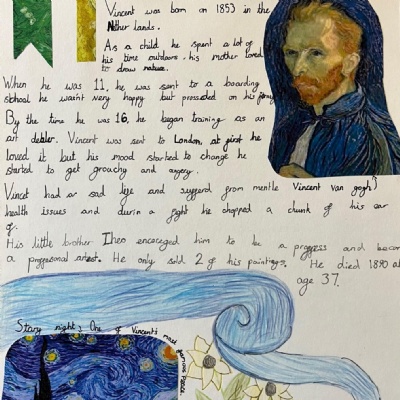 Vincent was born on 1853 in the
Nether lands.
As a child he spent a lot of
his time outdoors, his mother loved
to draw nature.
When he was 11, he was sent to a boarding
school he wasn't very happy but prossded on his jorney
By the time he was 16, he began training as an
art dealer. Vincent was sent to London, at first he
loved it but his mood started to change he
started to get grouchy and angery.
Vincet had ar sad life and sufferd from mentle
Vincent van gogh
health issues and durin a fight he chopped a chunk of his ear
of.
His little brother Theo encoreged him to be a progress and becom
a proffesonal artest. He only sold 2 of his paintings. He died 1890 at
age 37.
Stary night: One of Vincent's most famouse Piece.